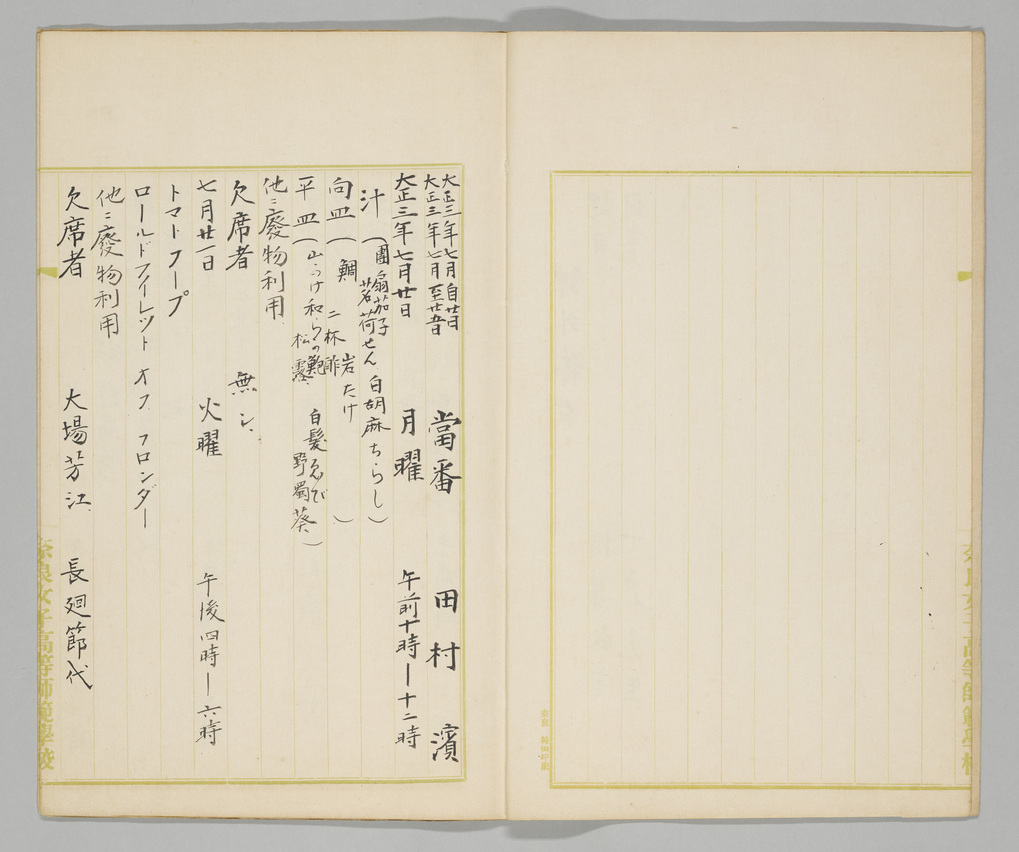 奈良女子高等師範學校
大正三年七月自廿日
大正三年七月至廿五日
當番 田村 濱
大正三年七月廿日 月曜 午前十時ー十二時
汁(團扇茄子
茗荷せん 白胡麻ちらし)
向皿(鯛 二杯酢 岩たけ)
平皿(
松露 白髪ゑび
野蜀葵)
他ニ廢物利用
欠席者 無シ、
七月廿一日 火曜 午後四時ー六時
トマトスープ
ロールドフイレツト オフ フロンダー
他ニ廢物利用
欠席者 大場芳江 長廻節代
奈良女子高等師範學校